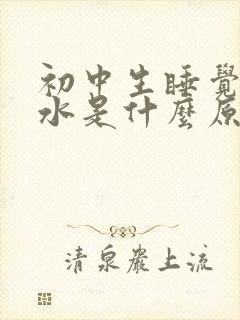 初中生睡覺
水是什麼原
清泉巖上流